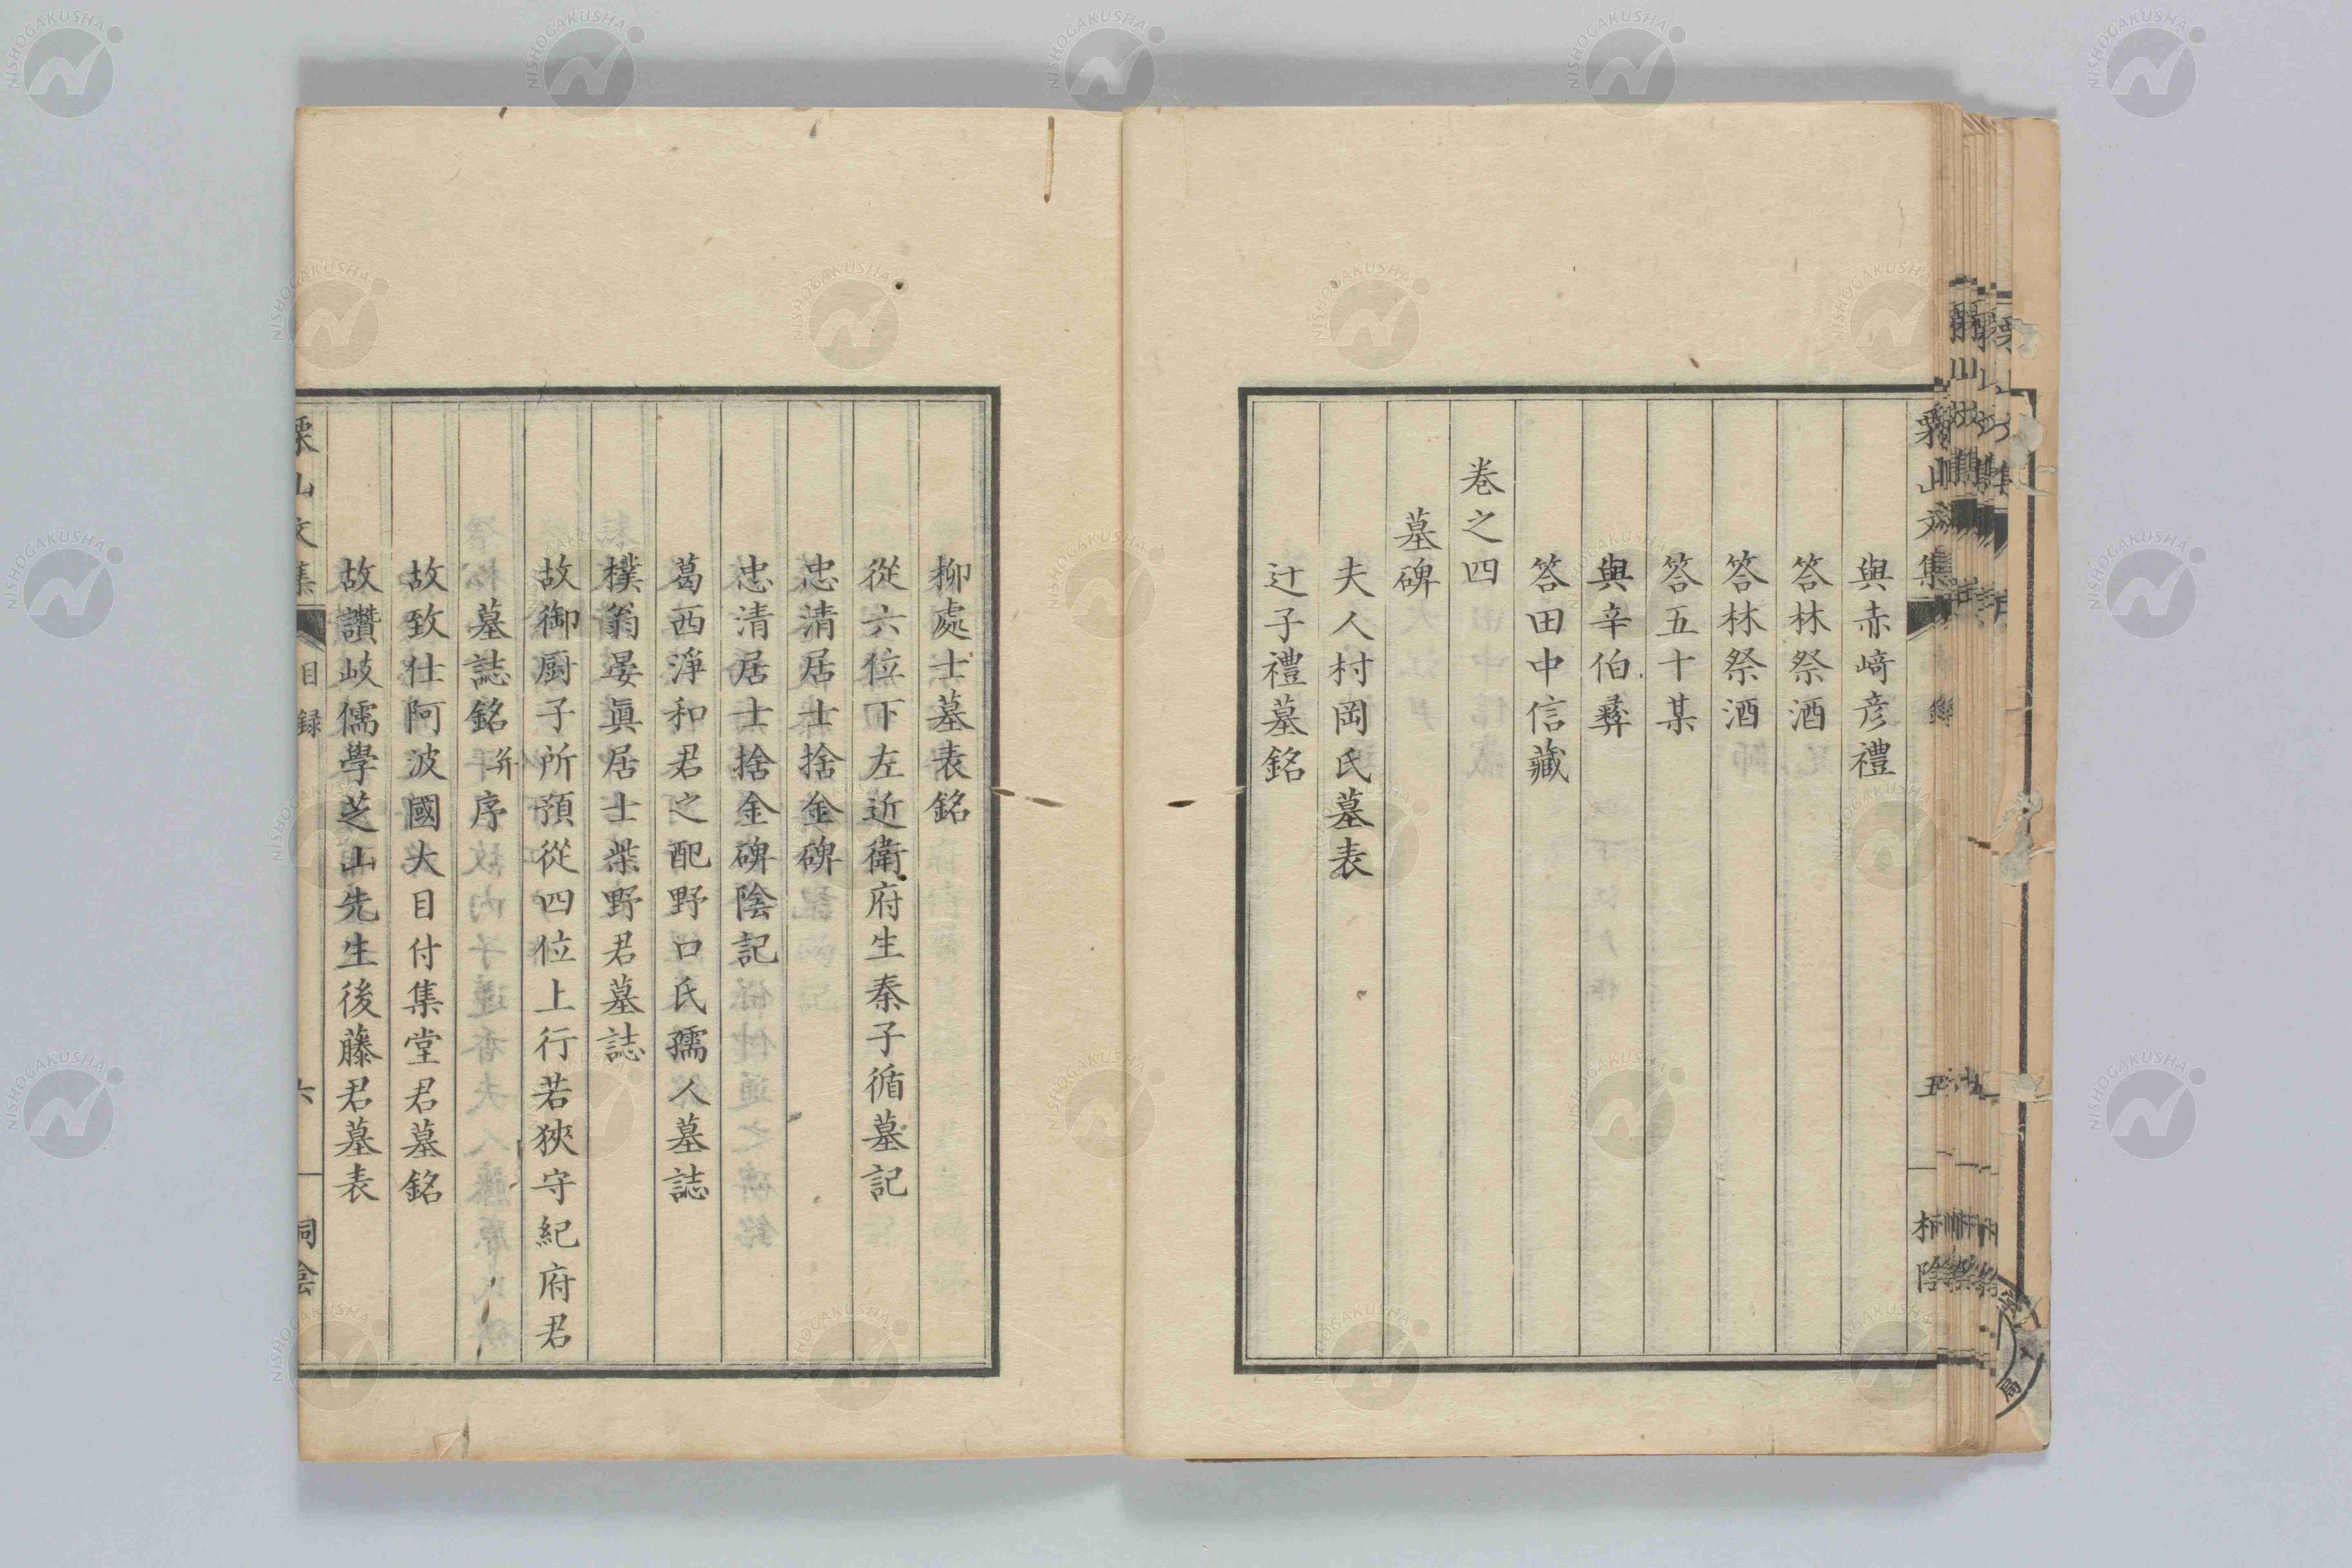 栗山文集
五
與赤﨑彦禮
答林祭酒
答林祭酒
答五十某
與辛伯彝
答田中信藏
卷之四
墓碑
夫人村岡氏墓表
辻子禮墓銘
柳處士墓表銘
從六位下左近衛府生秦子循墓記
忠清居士捨金碑
忠清居士捨金碑陰記
葛西淨和君之配野口氏孺人墓誌
樸翁晏眞居士柴野君墓誌
故御厨子所預從四位上行若狹守紀府君
墓誌銘并序
故致仕阿波國大目付集堂君墓銘
故讚岐儒學芝山先生後藤君墓表
栗山文集 目録 六 桐陰
NISHOGAKUSHA